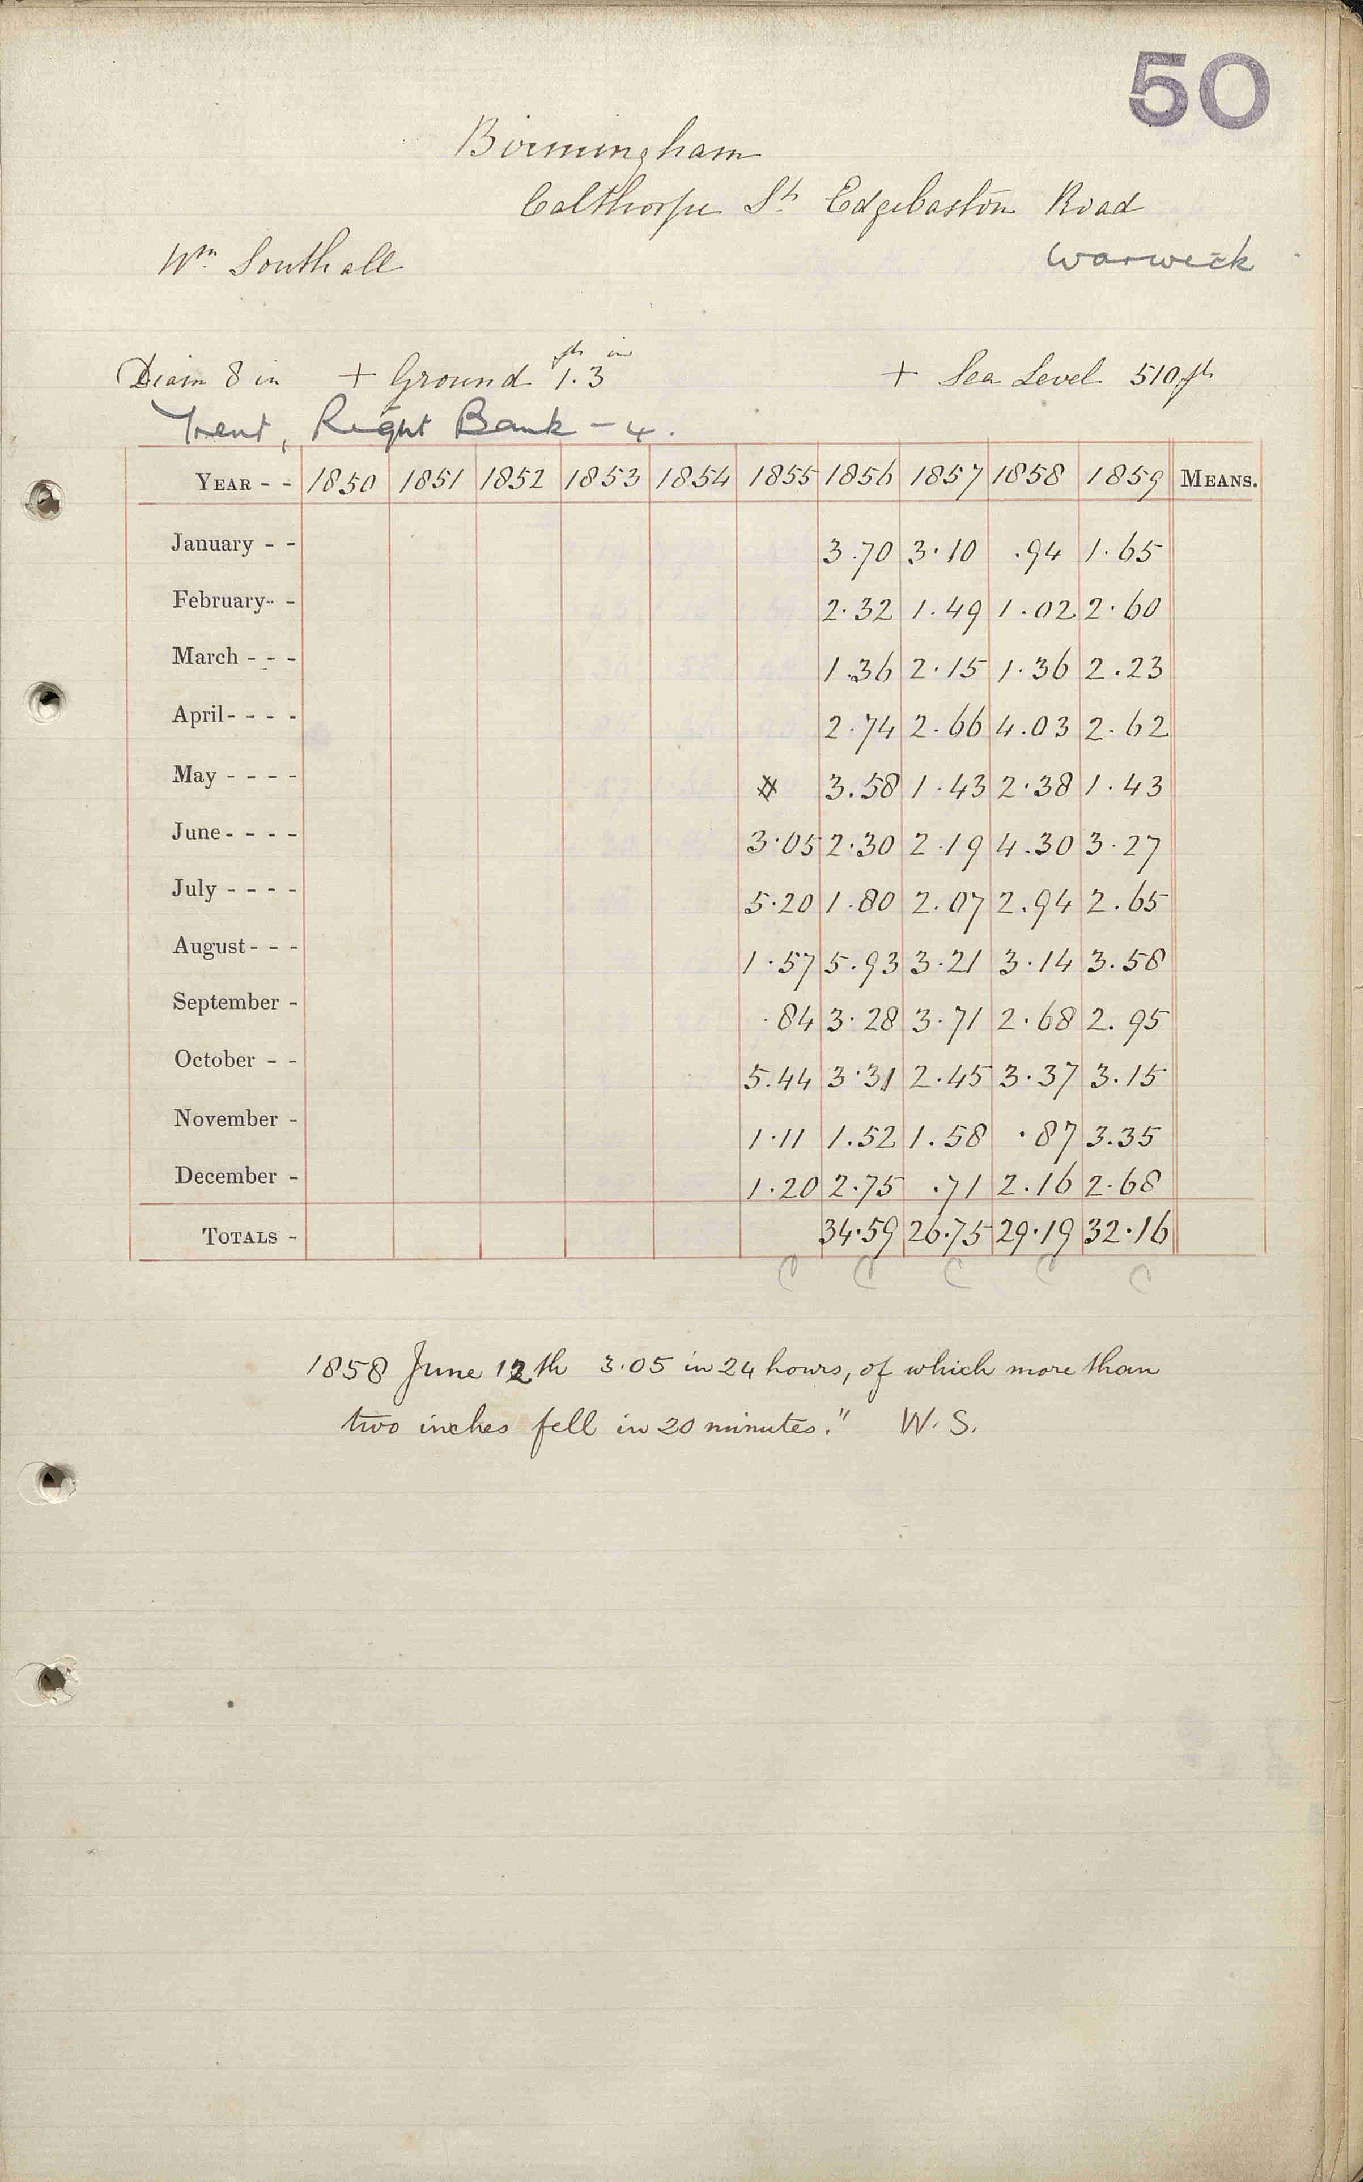 50
Birmingham
Calthorpe St. Edgebaston Road
Wm. Southall Warwick
Diam 8 in + Ground 1.3 ft in + Sea Level 510 ft
Trent, Right Bank - 4.
YEAR - - 1850 1851 1852 1853 1854 1855 1856 1857 1858 1859 MEANS.
January - - 3.70 3.10 .94 1.65
February - - 2.32 1.49 1.02 2.60
March - - - 1.36 2.15 1.36 2.23
April - - - - 2.74 2.66 4.03 2.62
May - - - - # 3.58 1.43 2.38 1.43
June - - - - 3.05 2.30 2.19 4.30 3.27
July - - - - 5.20 1.80 2.07 2.94 2.65
August - - - 1.57 5.93 3.21 3.14 3.58
September - .84 3.28 3.71 2.68 2.95
October - - 5.44 3.31 2.45 3.37 3.15
November - 1.11 1.52 1.58 .87 3.35
December - 1.20 2.75 .71 2.16 2.68
TOTALS - 34.59 26.75 29.19 32.16
C C C C C
1858 June 12th 3.05 in 24 hours, of which more than
two inches fell in 20 minutes." W. S.